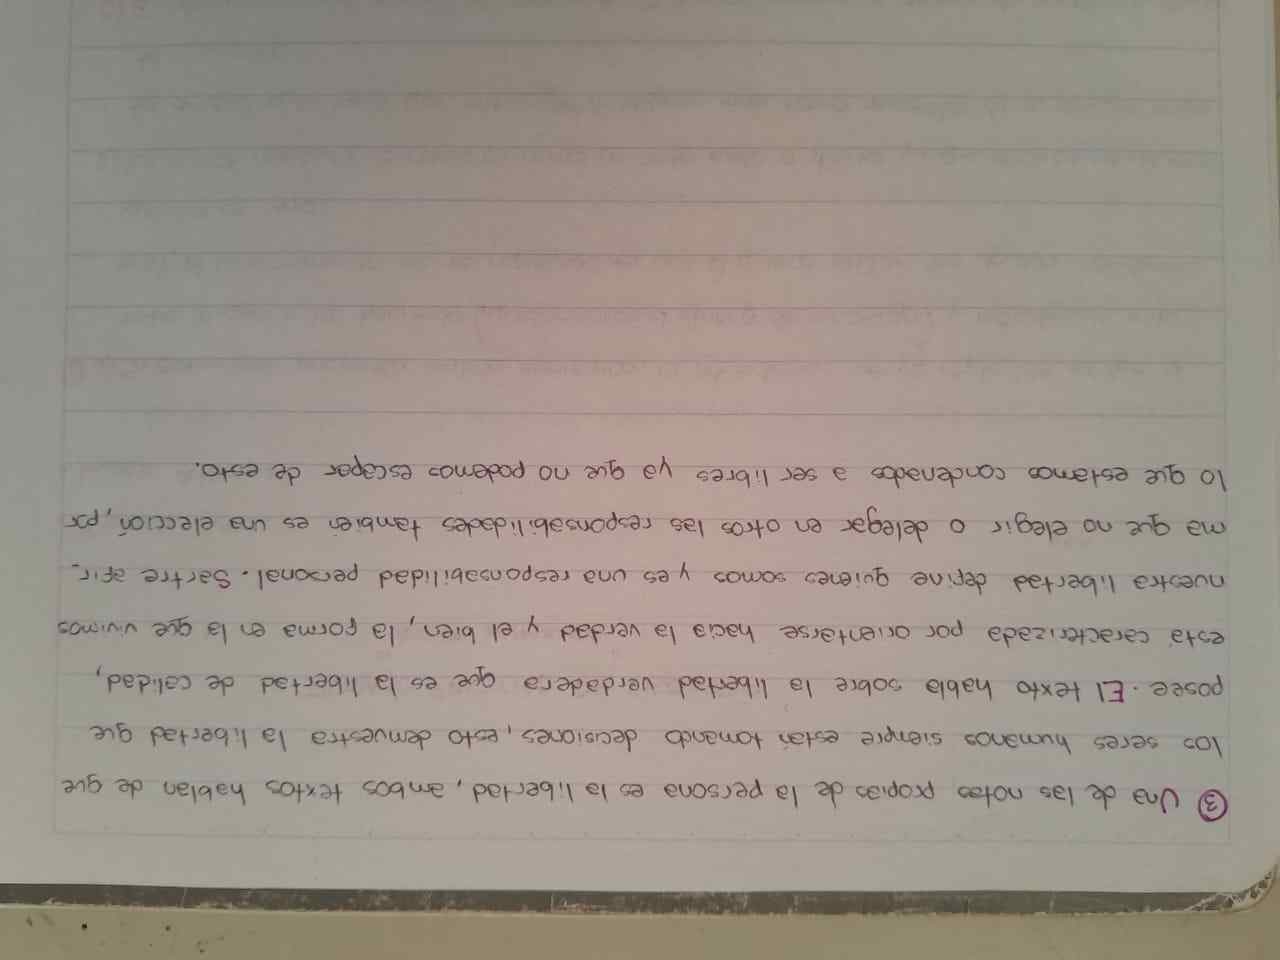 ③ Una de las notas propias de la persona es la libertad, ambos textos hablan de que
los seres humanos siempre están tomando decisiones, esto demuestra la libertad que
posee. El texto habla sobre la libertad verdadera que es la libertad de calidad,
está caracterizada por orientarse hacia la verdad y el bien, la forma en la que vivimos
nuestra libertad define quienes somos y es una responsabilidad personal. Sartre afir-
ma que no elegir o delegar en otros las responsabilidades también es una elección, por
lo que estamos condenados a ser libres ya que no podemos escapar de esto.